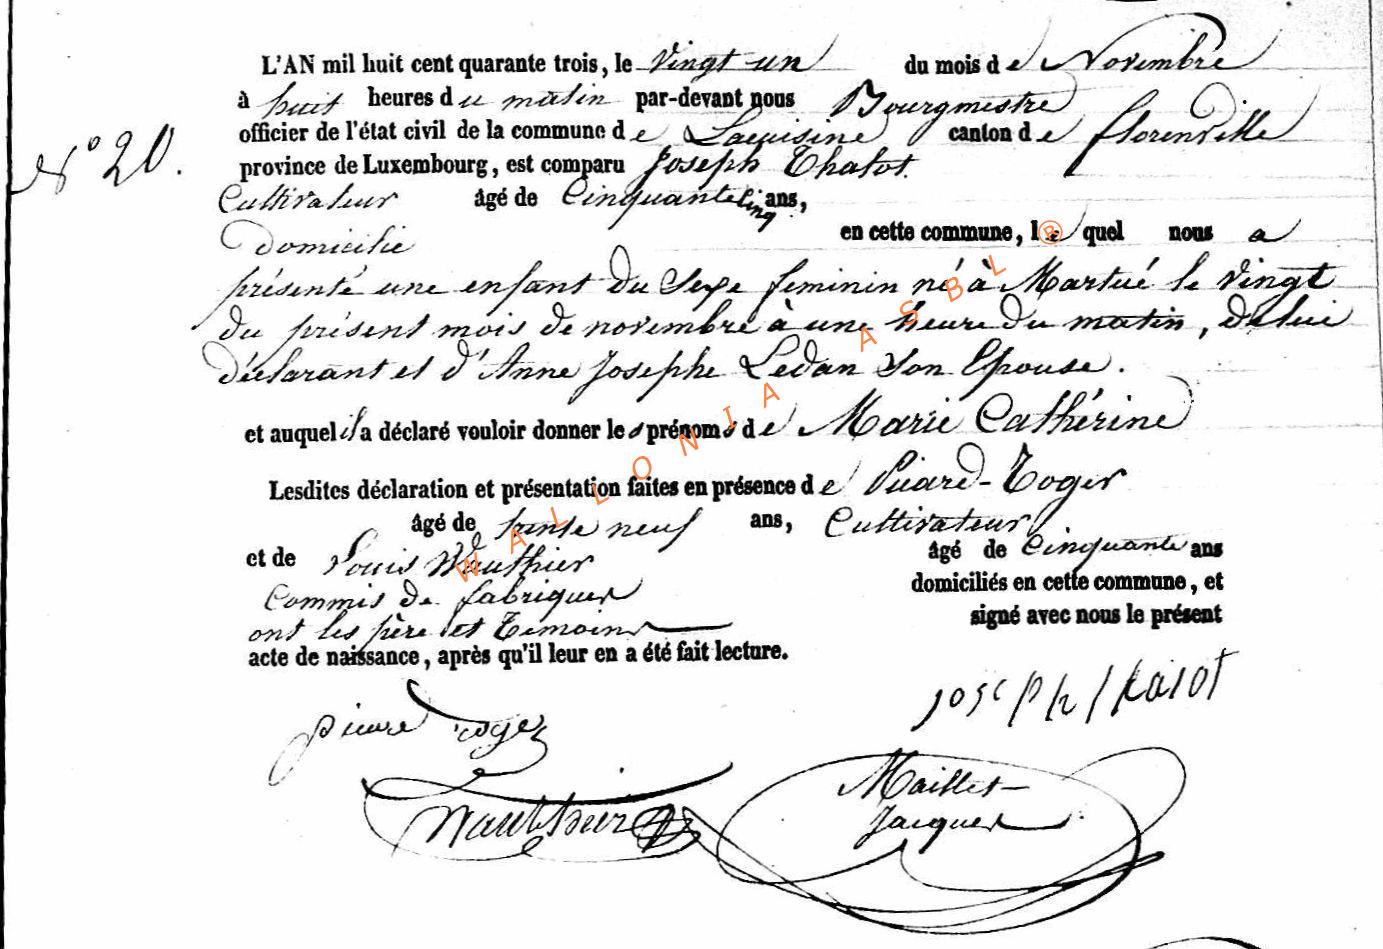 L'AN mil huit cent quarante trois, le vingt un du mois de Novembre
à huit heures du matin par-devant nous Bourgmestre
officier de l'état civil de la commune de Lacuisine canton de florenville
N° 20.
province de Luxembourg, est comparu Joseph Thalot
Cultivateur âgé de Cinquante cinq ans,
Domicilie en cette commune, le quel nous a
présenté une enfant du Sexe feminin né à Martué le vingt
du présent mois de novembre à une heure du matin, de lui
déclarant et d'Anne Josephe Ledan Son Epouse.
et auquel il a déclaré vouloir donner les prénoms de Marie Cathérine
Lesdites déclaration et présentation faites en présence de Toger
âgé de trente neuf ans, Cultivateur
et de Louis Wauthier âgé de Cinquante ans
Commis de fabriques domiciliés en cette commune, et
ont les père et Temoins signé avec nous le présent
acte de naissance, après qu'il leur en a été fait lecture.
Joseph thalot
pierre toger
Maillet
Wauthier Jacques
WALLONIA ASBL ®